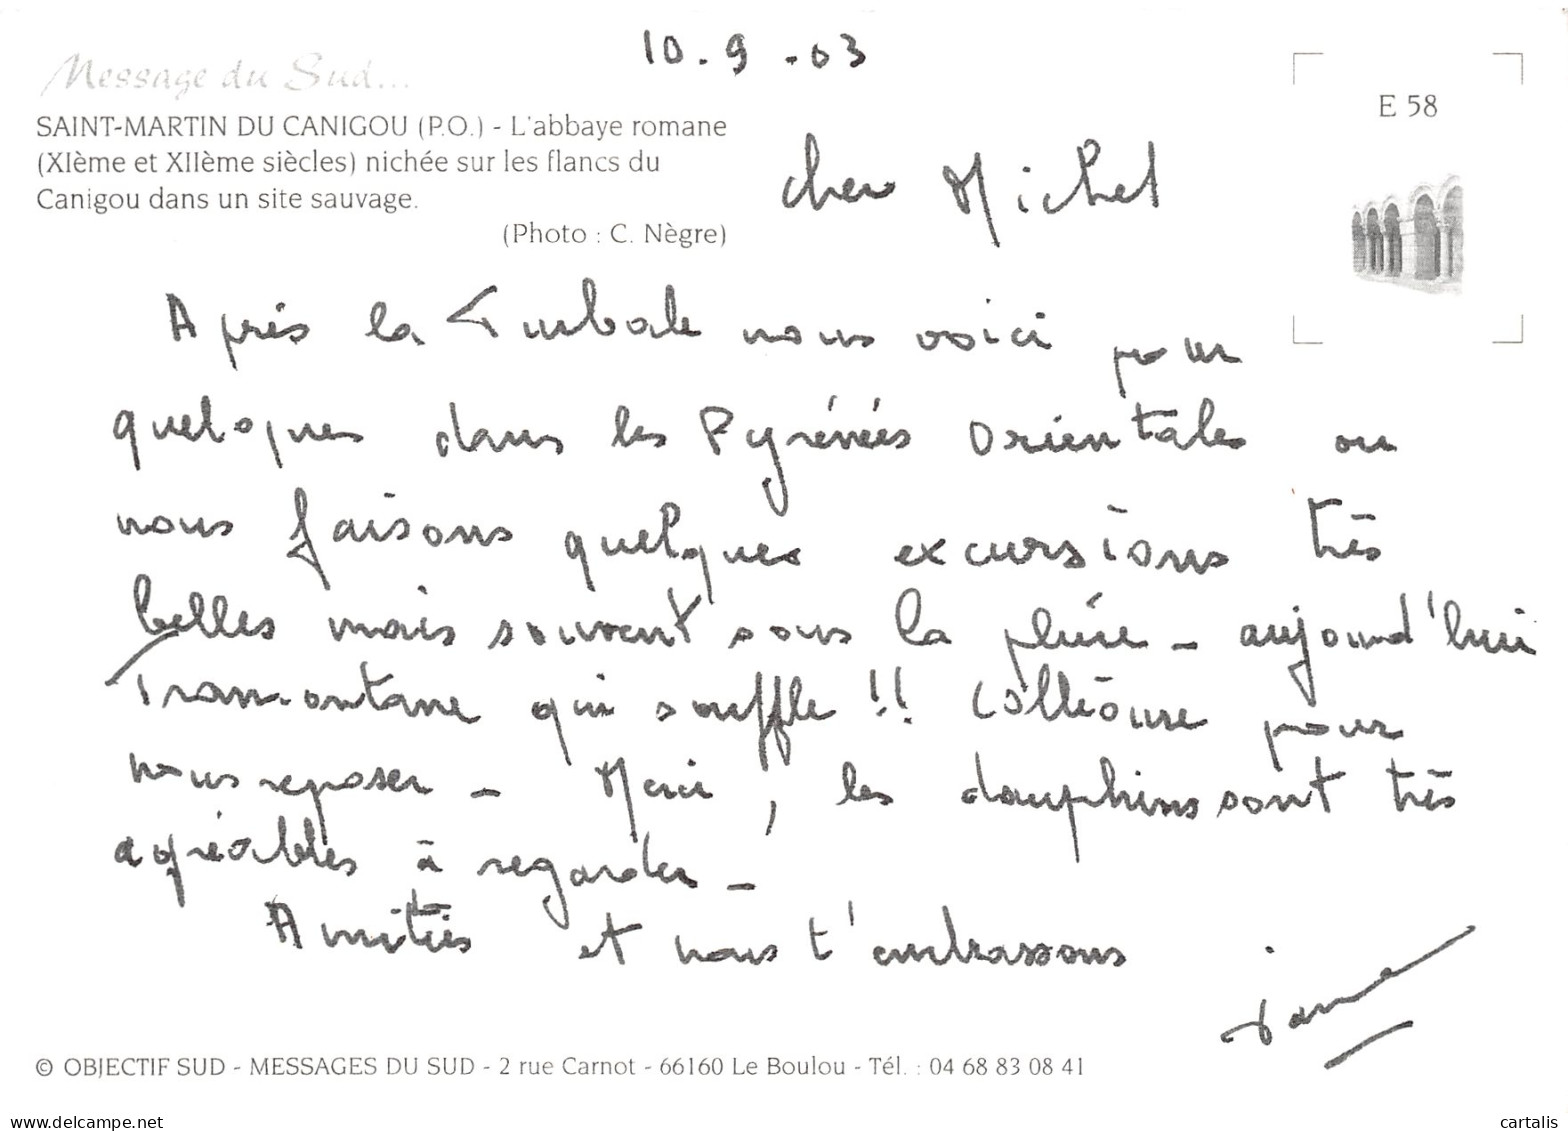 10.9.03
Message du Sud...
E 58
SAINT-MARTIN DU CANIGOU (P.O.) - L'abbaye romane
(XIème et XIIème siècles) nichée sur les flancs du
Canigou dans un site sauvage.
(Photo : C. Nègre)
cher Michel
Après la Turbale nous voici pour
quelques dans les Pyrénées Orientales ou
nous faisons quelques excursions très
belles mais souvent sous la pluie - aujourd'hui
Tramontane qui souffle !! Collioure pour
nous reposer - Merci, les dauphins sont très
agréables à regarder -
Amitiés et nous t'embrassons
© OBJECTIF SUD - MESSAGES DU SUD - 2 rue Carnot - 66160 Le Boulou - Tél. : 04 68 83 08 41
www.delcampe.net
cartalis